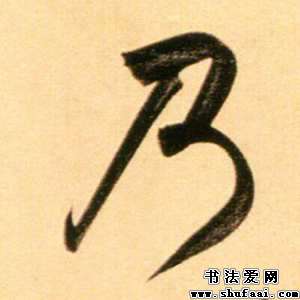 乃
书法爱网
www.shufaai.com